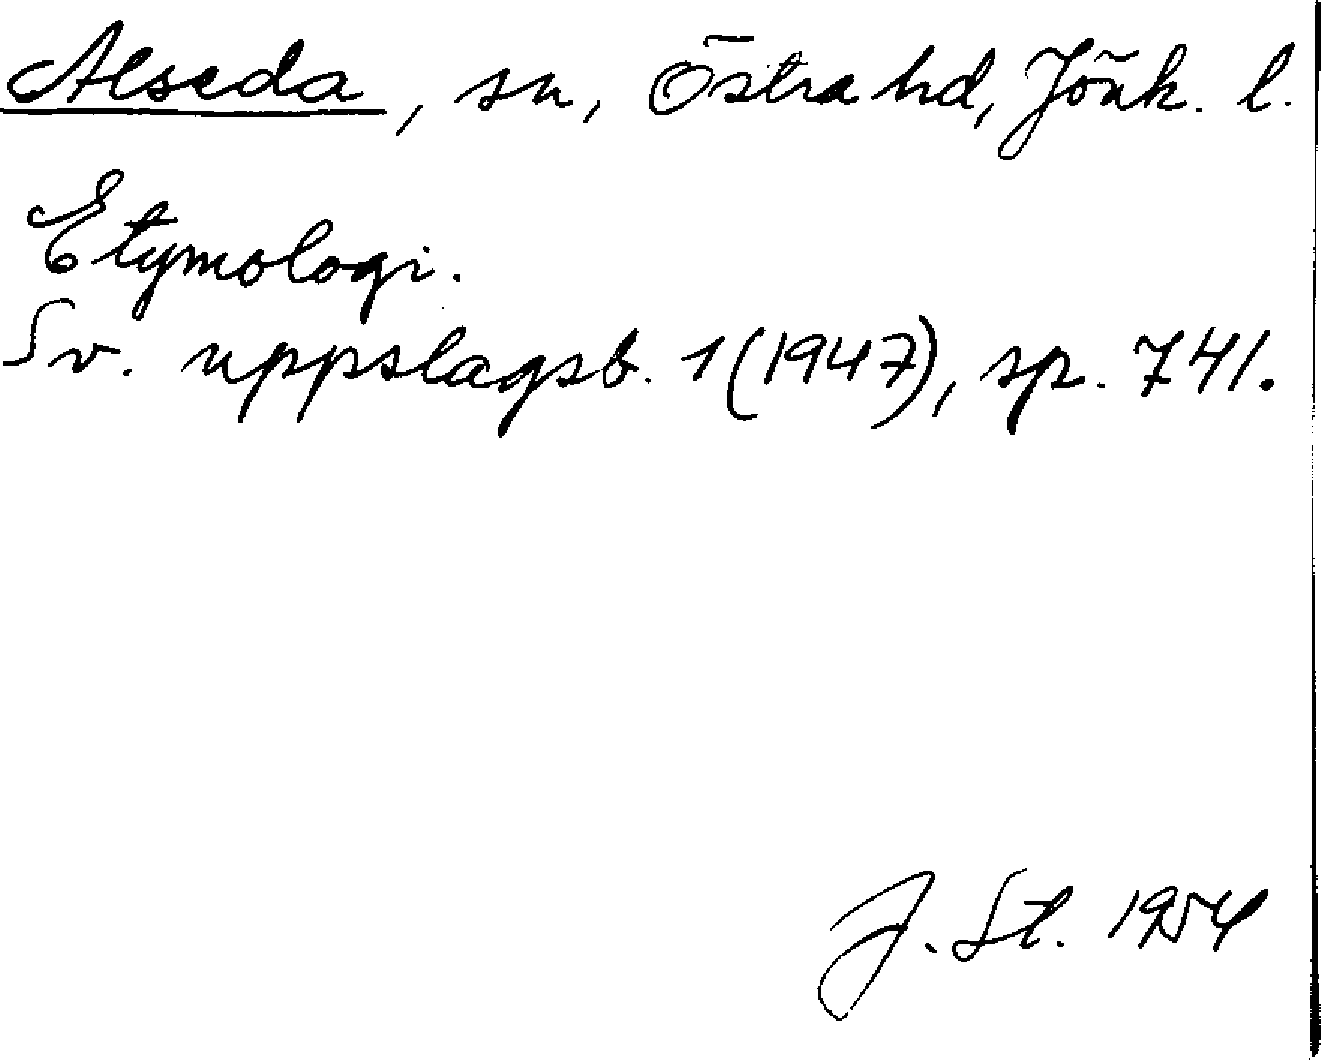 Alseda, sn, Östra hd, Jönk. l.
Etymologi.
Sv. uppslagsb. 1 (1947), sp. 741.
J. St. 1954